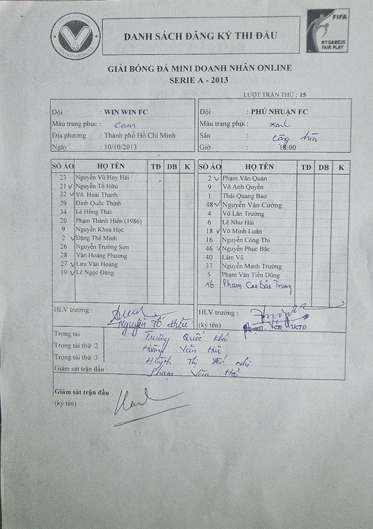 DANH SÁCH ĐĂNG KÝ THI ĐẤU
FIFA
MY GAME IS FAIR PLAY
GIẢI BÓNG ĐÁ MINI DOANH NHÂN ONLINE
SERIE A - 2013
LƯỢT TRẬN THỨ : 15
Đội : WIN WIN FC
Màu trang phục : Cam
Địa phương : Thành phố Hồ Chí Minh
Ngày : 10/10/2013
Đội : PHÚ NHUẬN FC
Màu trang phục :
Sân :
Giờ : 18:00
SỐ ÁO HỌ TÊN TĐ DB K
23 Nguyễn Vũ Huy Hải
21 Nguyễn Tố Hữu
32 Võ Hoài Thanh
29 Đinh Quốc Thịnh
34 Lê Hồng Thái
20 Phạm Thành Hiền (1986)
9 Nguyễn Khoa Học
2 Đặng Thế Minh
26 Nguyễn Trường Sơn
28 Văn Hoàng Phương
27 Lưu Văn Hoàng
19 Lê Ngọc Đăng
SỐ ÁO HỌ TÊN TĐ DB K
2 Phạm Văn Quản
9 Võ Anh Quyền
1 Thái Quang Bảo
48 Nguyễn Văn Cường
4 Võ Lân Trường
6 Lê Như Hải
18 Võ Minh Luân
16 Nguyễn Công Thi
46 Nguyễn Phúc Bắc
40 Lâm Vũ
37 Nguyễn Mạnh Trường
5 Phạm Văn Tiến Dũng
16 Phạm Cao Trung
HLV trưởng :
Nguyễn Tố Hữu
HLV trưởng :
(ký tên)
Trọng tài Trương Quốc
Trọng tài thứ 2 Hoàng Văn
Trọng tài thứ 3 Huỳnh Thị
Giám sát trận đấu Phạm Văn
Giám sát trận đấu
(ký tên)